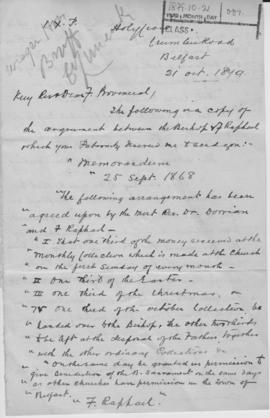 1879-10-21
YEAR MONTH DAY
CLASS
J. X. F.
Holy Cross
Crumlin Road
Belfast
21 Oct. 1879
My Rev Dear F. Provincial,
The following is a copy of
the arrangement between the Bishop & F Raphael
which your Paternity desired me to send you:
" Memorandum
" 25 Sept. 1868
" The following arrangement has been
" agreed upon by the Most Rev. Dr. Dorrian
" and F Raphael -
" I That one third of the money received at the
" Monthly Collection which is made at the Church
" on the first Sunday of every month -
" II One third of the Easter -
" III One third of the Christmas, &
" IV One third of the October Collection, be
" handed over to the Bishop, the other two thirds
" to be left at the disposal of the Fathers, together
" with the other ordinary Collections &
" On the same day be granted us permission to
" give Benediction of the Bl. Sacrament on the same days
" as other Churches have permission in the town of
" Belfast. "
" F. Raphael "